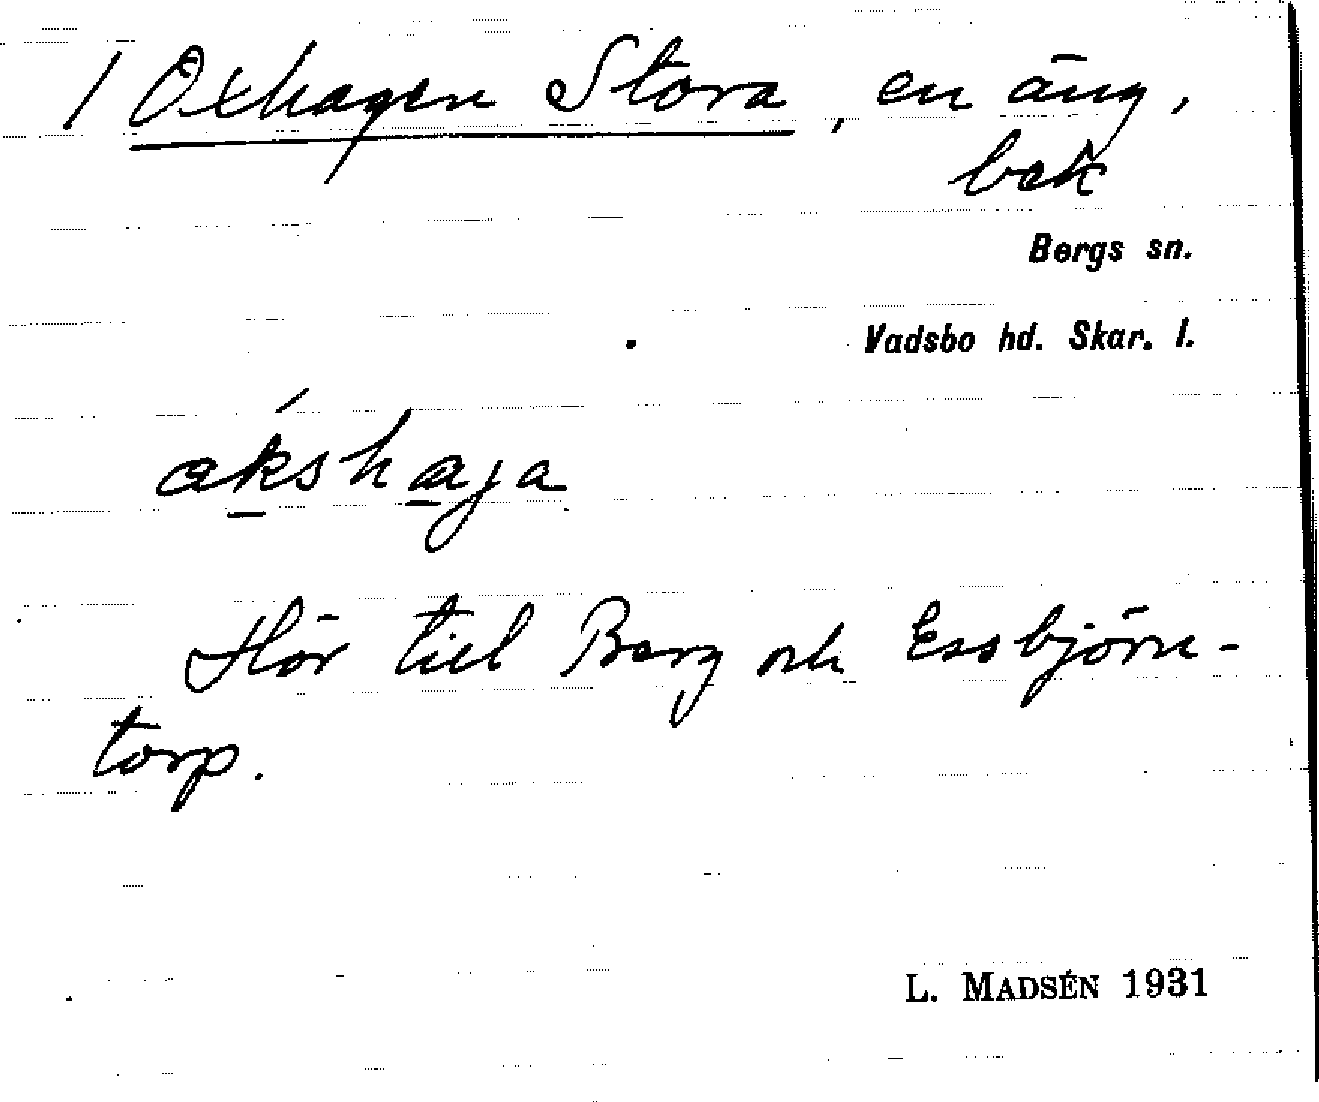 / Oxhagen Stora, en äng,
bek
Bergs sn.
Vadsbo hd. Skar. l.
ákshaja
Hör till Berg och Essbjörn-
torp.
L. MADSÉN 1931